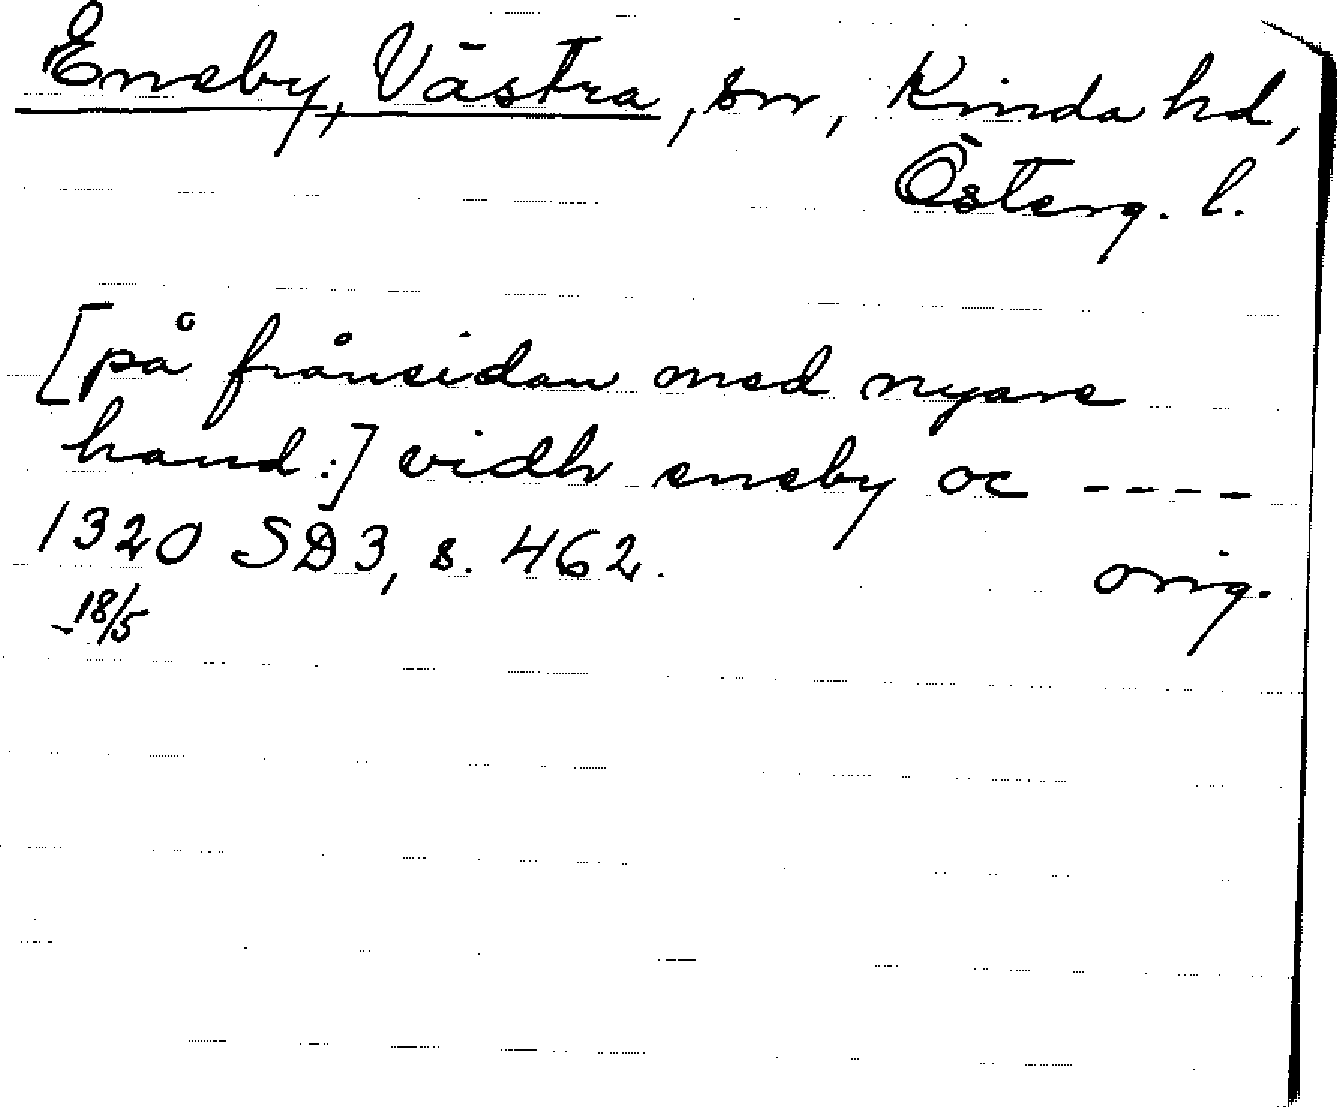 Eneby, Västra, sn, Kinda hd,
Österg. l.
[på frånsidan med nyare
hand:] vidh eneby oc ----
1320 SD3, s. 462.
orig.
18/5